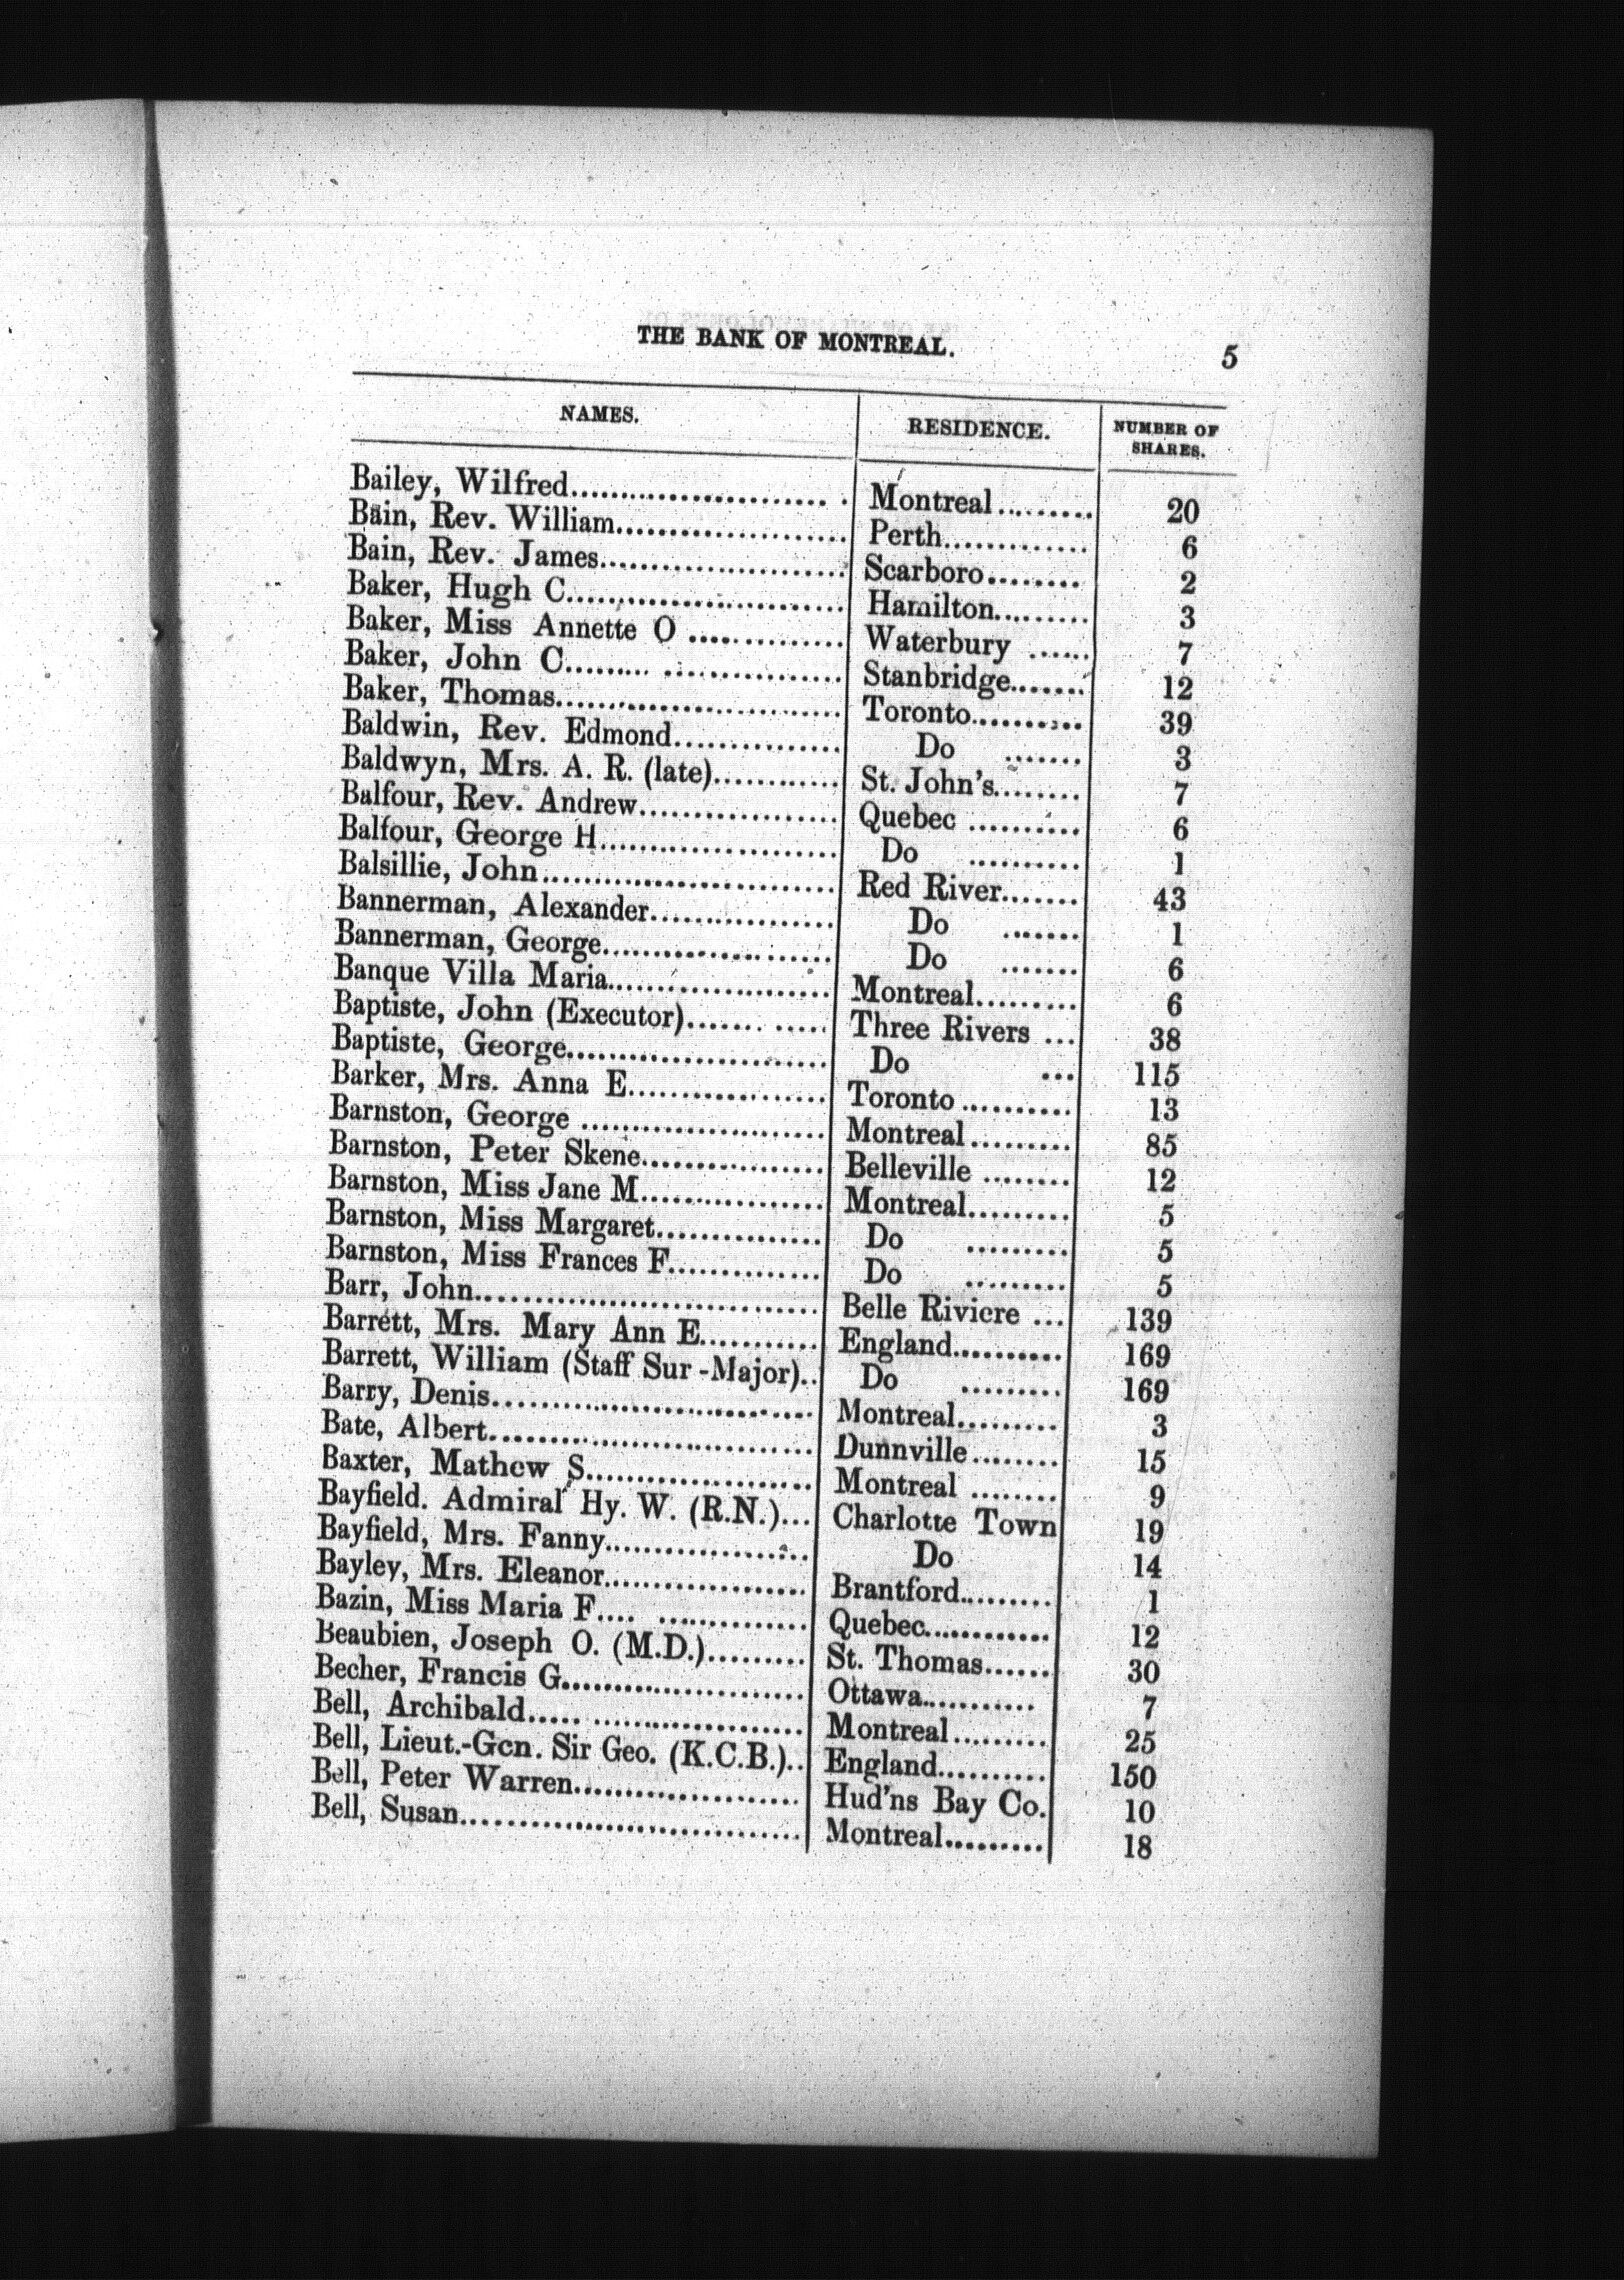 THE BANK OF MONTREAL. 5
NAMES. RESIDENCE. NUMBER OF SHARES.
Bailey, Wilfred Montreal 20
Bain, Rev. William Perth 6
Bain, Rev. James Scarboro 2
Baker, Hugh C. Hamilton 3
Baker, Miss Annette O Waterbury 7
Baker, John C. Stanbridge 12
Baker, Thomas Toronto 39
Baldwin, Rev. Edmond Do 3
Baldwyn, Mrs. A. R. (late) St. John's 7
Balfour, Rev. Andrew Quebec 6
Balfour, George H. Do 1
Balsillie, John Red River 43
Bannerman, Alexander Do 1
Bannerman, George Do 6
Banque Villa Maria Montreal 6
Baptiste, John (Executor) Three Rivers 38
Baptiste, George Do 115
Barker, Mrs. Anna E. Toronto 13
Barnston, George Montreal 85
Barnston, Peter Skene Belleville 12
Barnston, Miss Jane M. Montreal 5
Barnston, Miss Margaret Do 5
Barnston, Miss Frances F. Do 5
Barr, John Belle Riviere 139
Barrett, Mrs. Mary Ann E. England 169
Barrett, William (Staff Sur-Major) Do 169
Barry, Denis Montreal 3
Bate, Albert Dunnville 15
Baxter, Mathew S. Montreal 9
Bayfield. Admiral Hy. W. (R.N.) Charlotte Town 19
Bayfield, Mrs. Fanny Do 14
Bayley, Mrs. Eleanor Brantford 1
Bazin, Miss Maria F. Quebec 12
Beaubien, Joseph O. (M.D.) St. Thomas 30
Becher, Francis G. Ottawa 7
Bell, Archibald Montreal 25
Bell, Lieut.-Gen. Sir Geo. (K.C.B.) England 150
Bell, Peter Warren Hud'ns Bay Co. 10
Bell, Susan Montreal 18